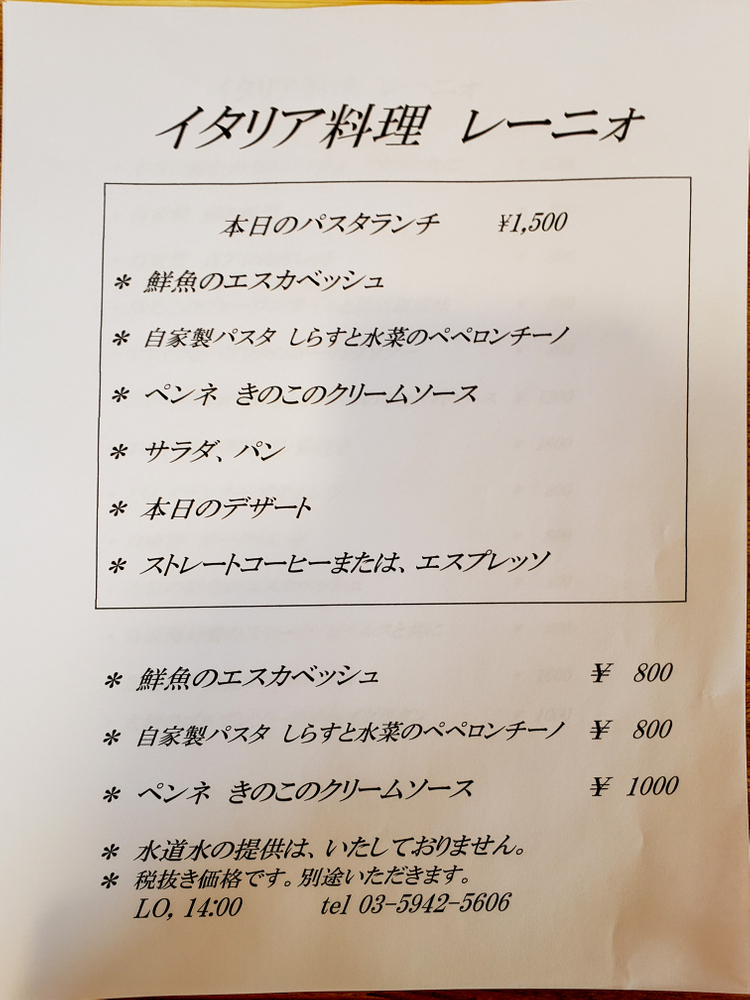 イタリア料理 レーニォ
本日のパスタランチ ¥1,500
* 鮮魚のエスカベッシュ
* 自家製パスタ しらすと水菜のペペロンチーノ
* ペンネ きのこのクリームソース
* サラダ、パン
* 本日のデザート
* ストレートコーヒーまたは、エスプレッソ
* 鮮魚のエスカベッシュ ¥ 800
* 自家製パスタ しらすと水菜のペペロンチーノ ¥ 800
* ペンネ きのこのクリームソース ¥ 1000
* 水道水の提供は、いたしておりません。
* 税抜き価格です。別途いただきます。
LO, 14:00 tel 03-5942-5606